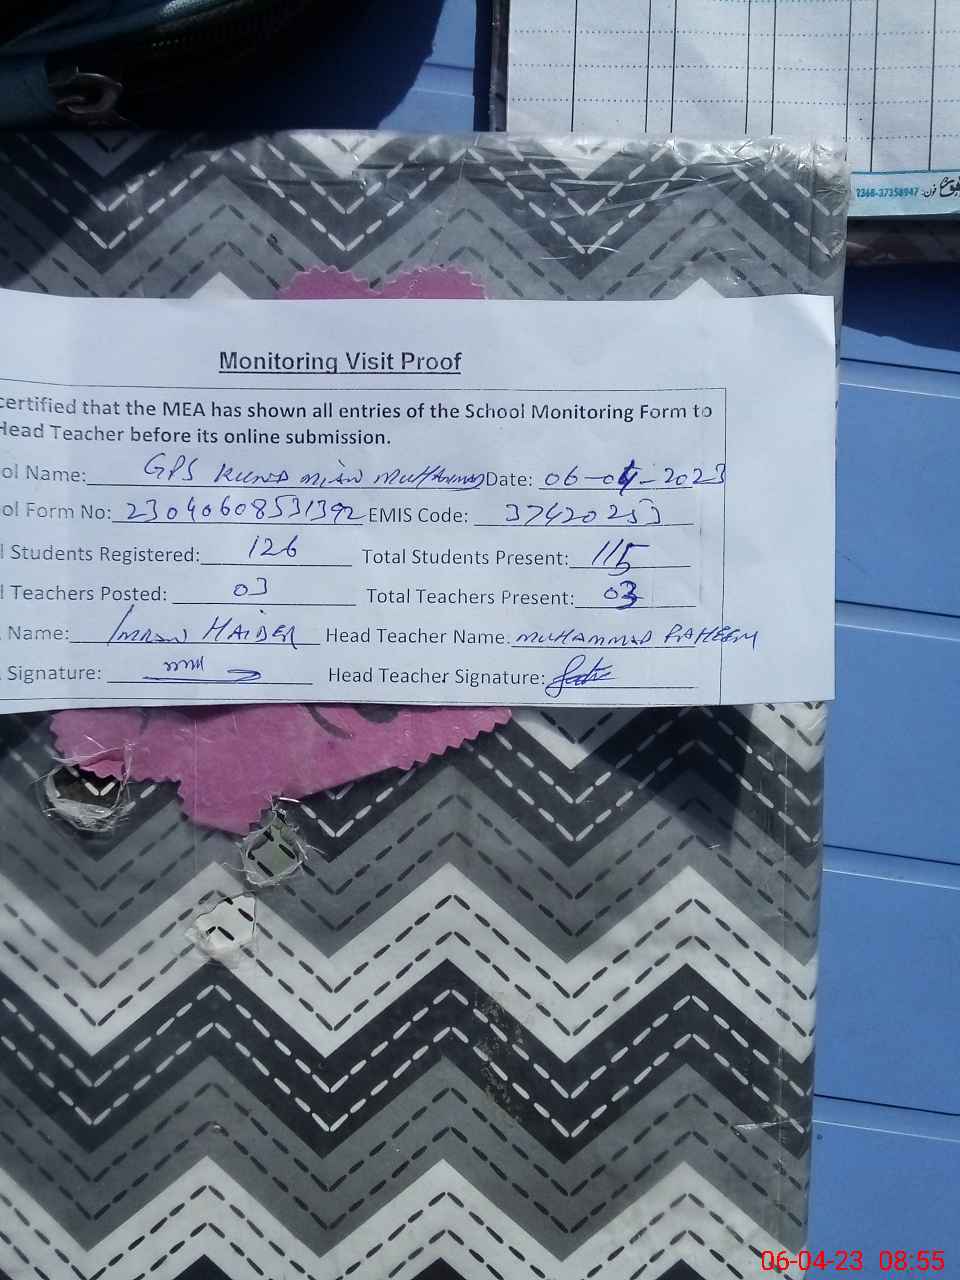 2368-37358947 فون:
Monitoring Visit Proof
certified that the MEA has shown all entries of the School Monitoring Form to
Head Teacher before its online submission.
ol Name: GPS KUND MIAN MUHAMMAD Date: 06-04-2023
ol Form No: 23040608531392 EMIS Code: 37420253
l Students Registered: 126 Total Students Present: 115
l Teachers Posted: 03 Total Teachers Present: 03
Name: IMRAN HAIDER Head Teacher Name: MUHAMMAD RAHEEM
Signature: Head Teacher Signature:
06-04-23 08:55